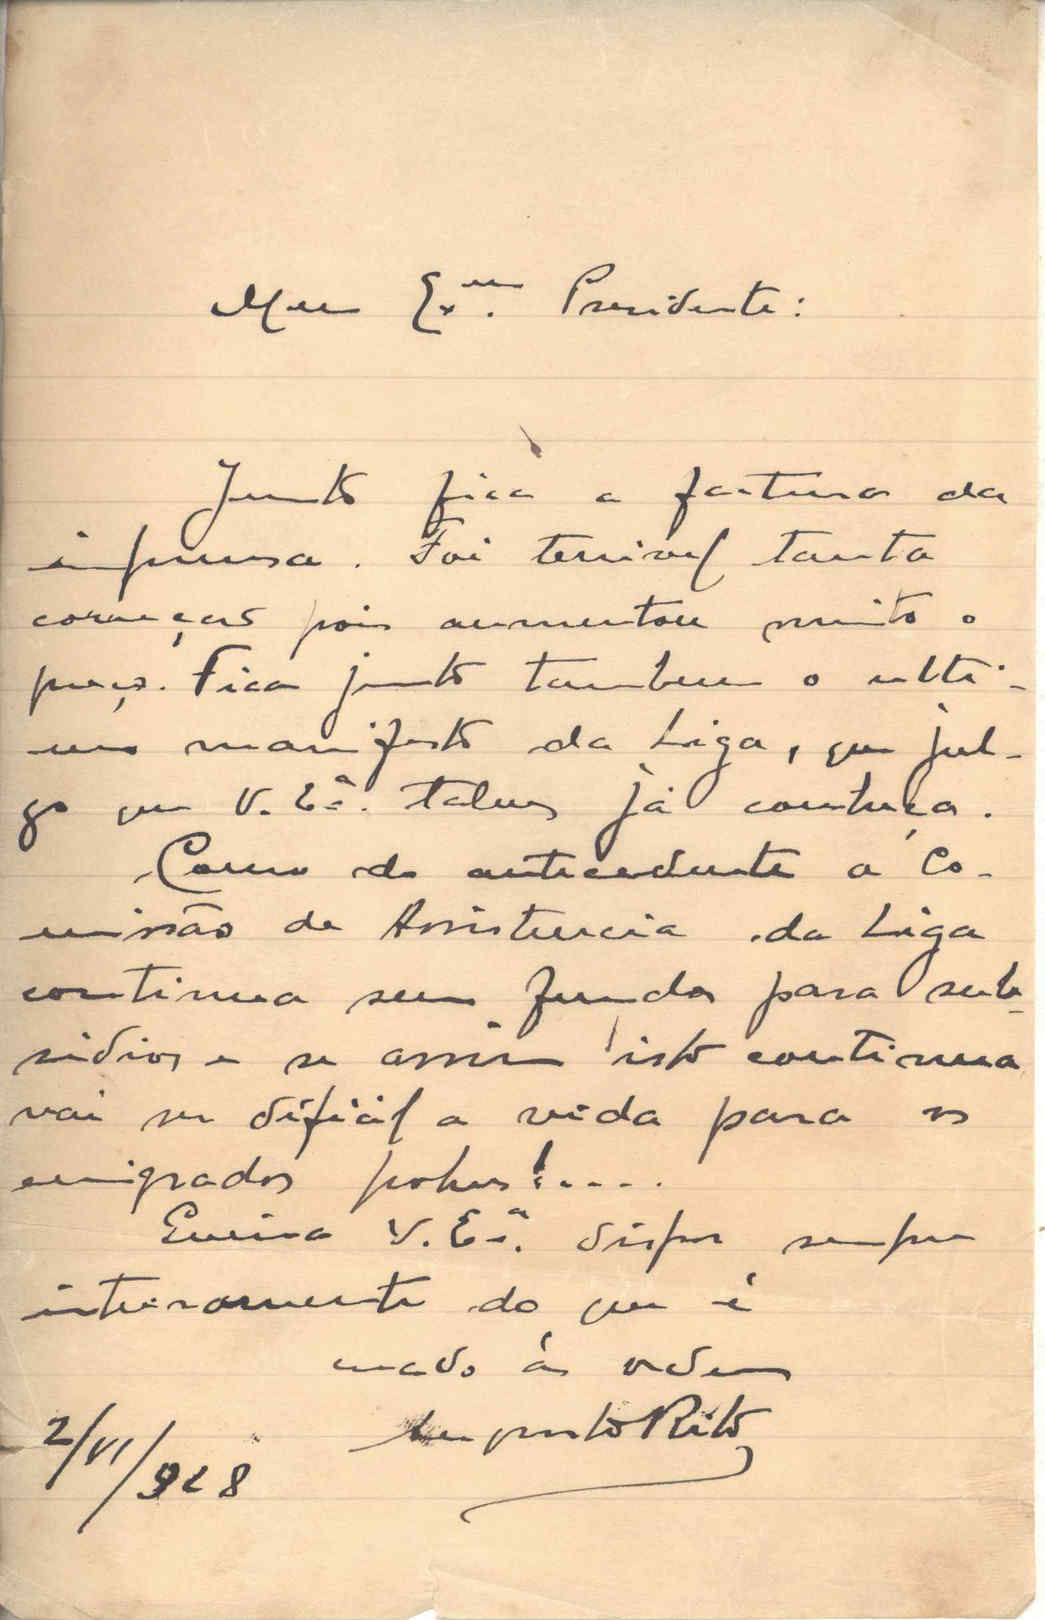 Meu Exmo. Presidente:
Junto fica a factura da
imprensa. Foi terrivel tanta
correcção pois aumentou muito o
preço. Fica junto tambem o ulti-
mo manifesto da Liga, que jul-
go que V. Exª. talvez já conheça.
Como do antecedente a Co-
missão de Assistencia da Liga
continua sem fundos para sub-
sidios e se assim isto continua
vai ser dificil a vida para os
emigrados pobres!....
Queira V. Exª. dispor sempre
inteiramente do que é
mado ás ordens
Augusto Rito
2/VI/928